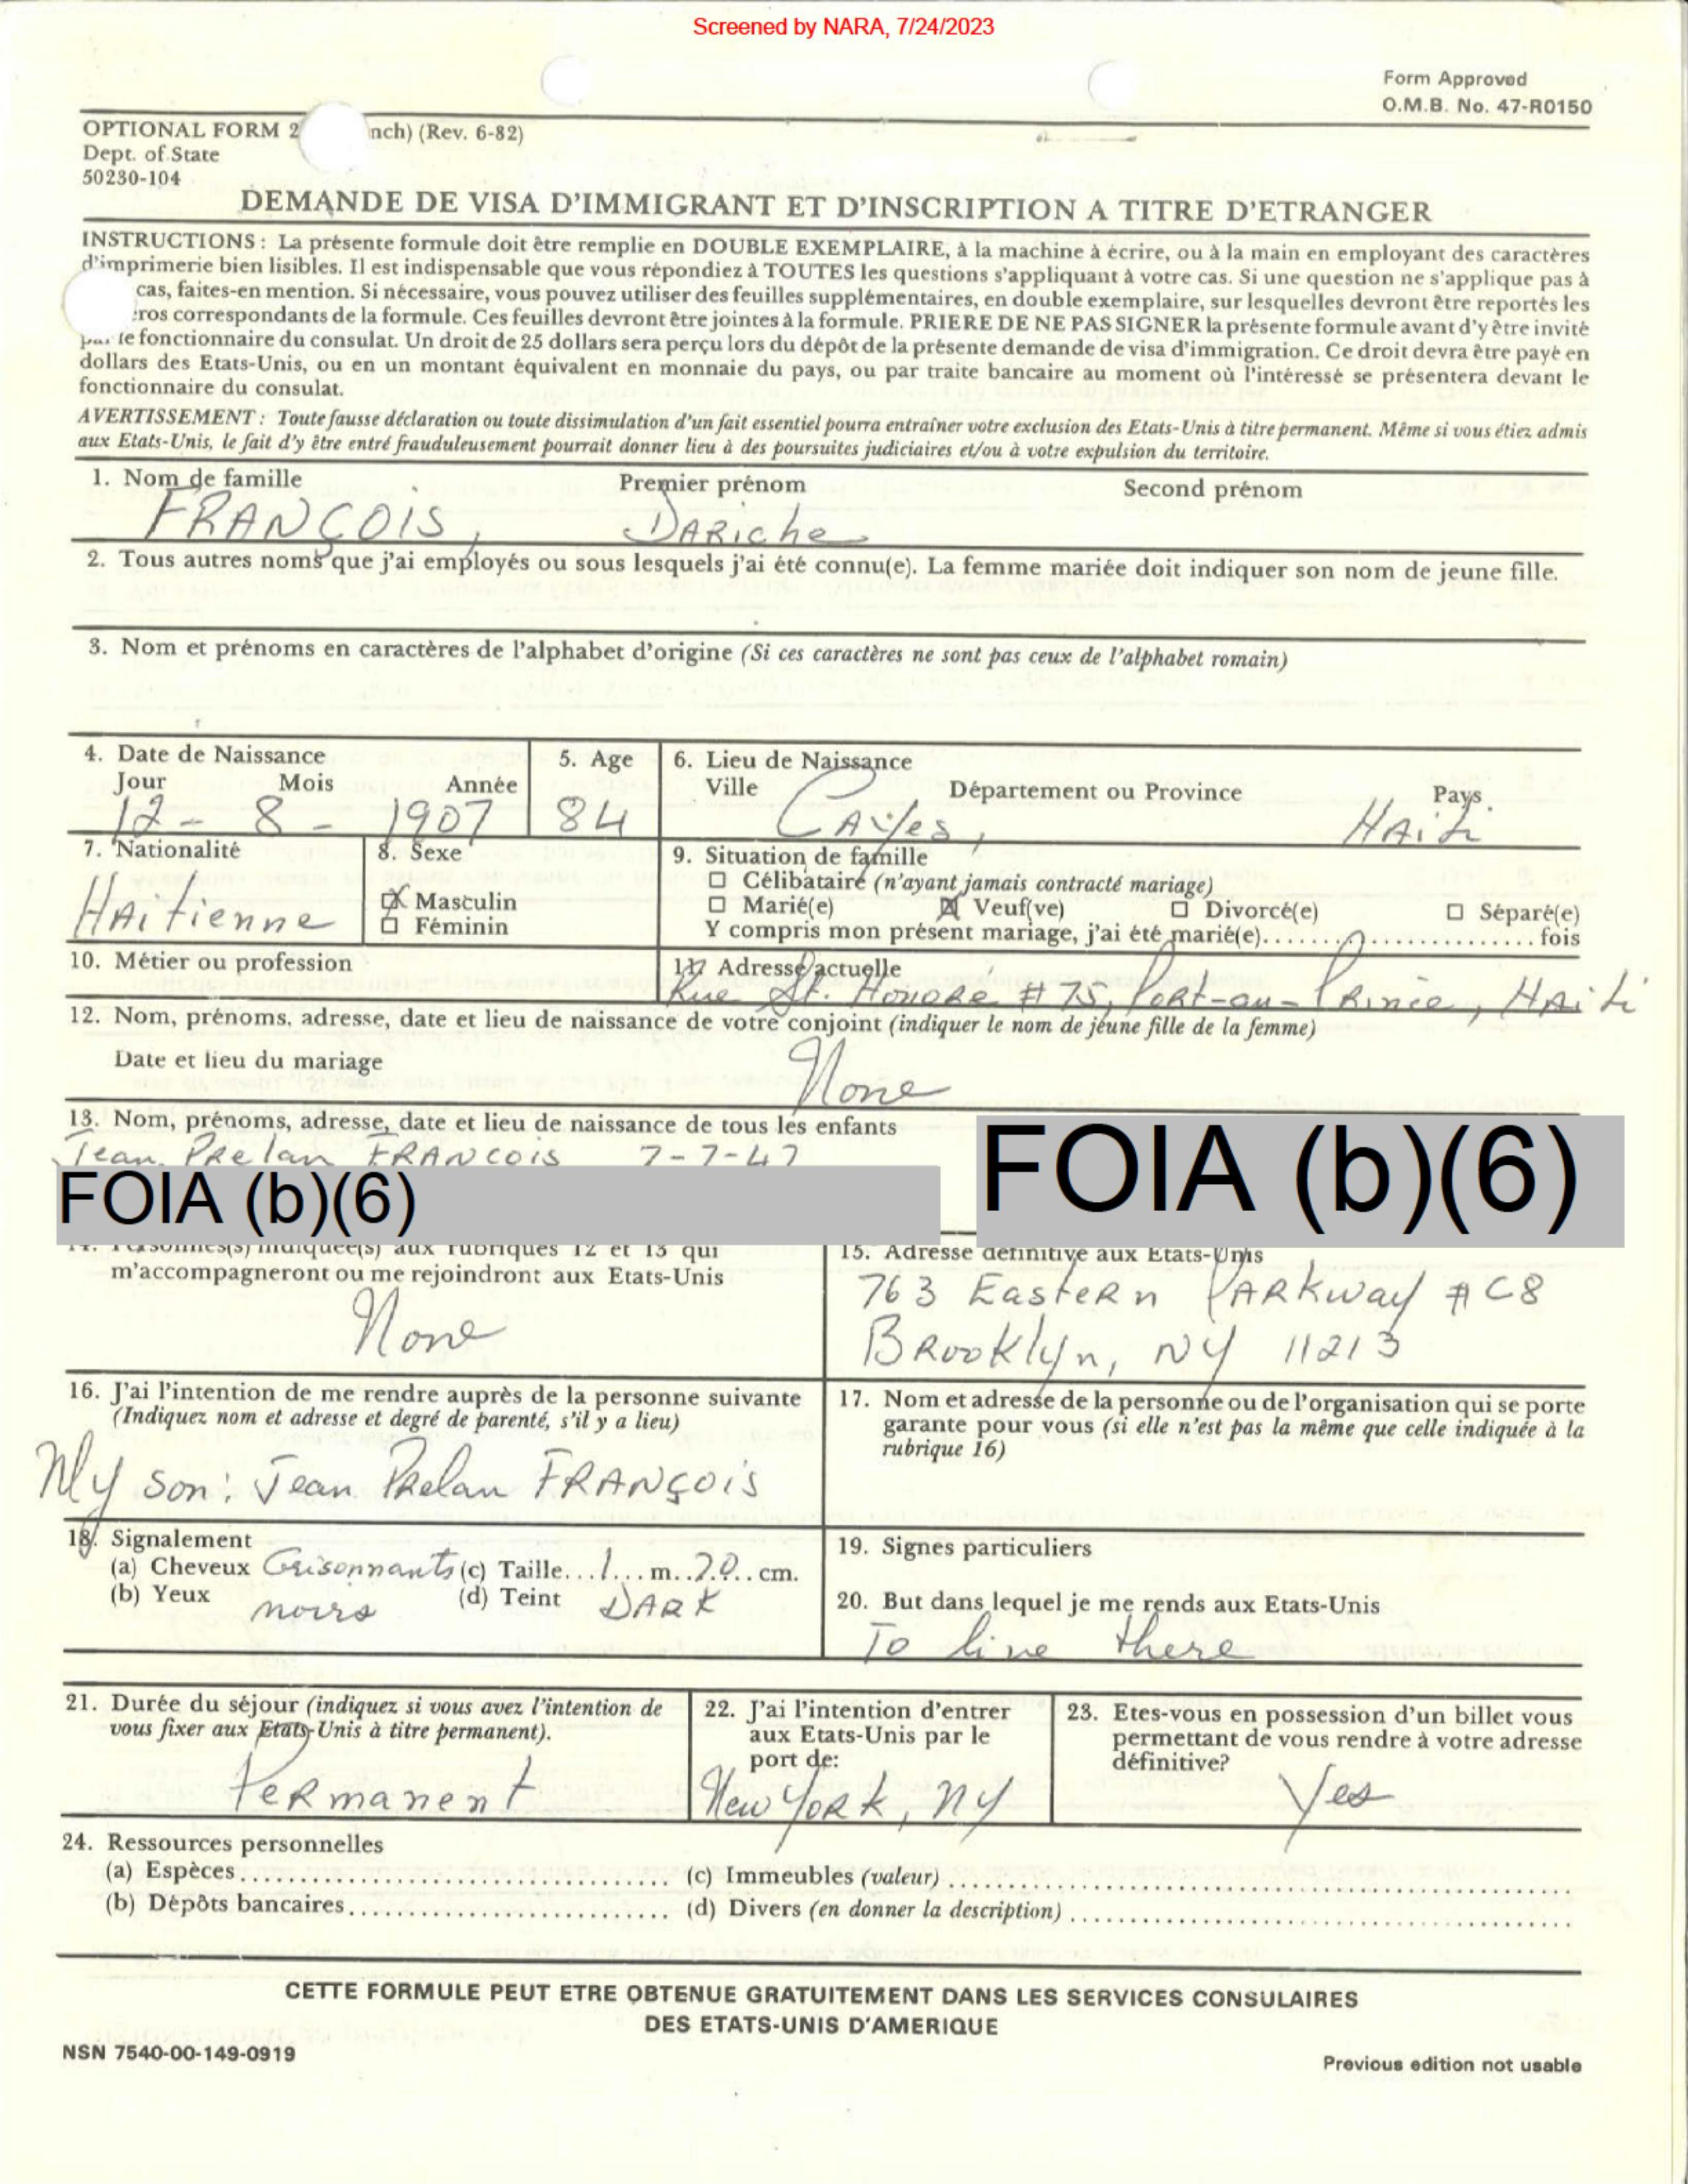 Screened by NARA, 7/24/2023
Form Approved
O.M.B. No. 47-R0150
OPTIONAL FORM 2 nch) (Rev. 6-82)
Dept. of State
50230-104
DEMANDE DE VISA D'IMMIGRANT ET D'INSCRIPTION A TITRE D'ETRANGER
INSTRUCTIONS : La présente formule doit être remplie en DOUBLE EXEMPLAIRE, à la machine à écrire, ou à la main en employant des caractères
d'imprimerie bien lisibles. Il est indispensable que vous répondiez à TOUTES les questions s'appliquant à votre cas. Si une question ne s'applique pas à
cas, faites-en mention. Si nécessaire, vous pouvez utiliser des feuilles supplémentaires, en double exemplaire, sur lesquelles devront être reportés les
ros correspondants de la formule. Ces feuilles devront être jointes à la formule. PRIERE DE NE PAS SIGNER la présente formule avant d'y être invité
le fonctionnaire du consulat. Un droit de 25 dollars sera perçu lors du dépôt de la présente demande de visa d'immigration. Ce droit devra être payé en
dollars des Etats-Unis, ou en un montant équivalent en monnaie du pays, ou par traite bancaire au moment où l'intéressé se présentera devant le
fonctionnaire du consulat.
AVERTISSEMENT : Toute fausse déclaration ou toute dissimulation d'un fait essentiel pourra entraîner votre exclusion des Etats-Unis à titre permanent. Même si vous étiez admis
aux Etats-Unis, le fait d'y être entré frauduleusement pourrait donner lieu à des poursuites judiciaires et/ou à votre expulsion du territoire.
1. Nom de famille Premier prénom Second prénom
FRANÇOIS, DARiche
2. Tous autres noms que j'ai employés ou sous lesquels j'ai été connu(e). La femme mariée doit indiquer son nom de jeune fille.
3. Nom et prénoms en caractères de l'alphabet d'origine (Si ces caractères ne sont pas ceux de l'alphabet romain)
4. Date de Naissance 5. Age 6. Lieu de Naissance
Jour Mois Année Ville Département ou Province Pays
12 - 8 - 1907 84 CAyes, HAiti
7. Nationalité 8. Sexe 9. Situation de famille
Célibataire (n'ayant jamais contracté mariage)
HAitienne Masculin Marié(e) Veuf(ve) Divorcé(e) Séparé(e)
Féminin Y compris mon présent mariage, j'ai été marié(e)..................fois
10. Métier ou profession 11. Adresse actuelle
Rue St. HONORE # 75, PORT-au-PRince, HAiti
12. Nom, prénoms, adresse, date et lieu de naissance de votre conjoint (indiquer le nom de jeune fille de la femme)
Date et lieu du mariage
None
13. Nom, prénoms, adresse, date et lieu de naissance de tous les enfants
Jean PRelan FRANCOIS 7-7-47
FOIA (b)(6)
FOIA (b)(6)
14. Personnes(s) indiquée(s) aux rubriques 12 et 13 qui
m'accompagneront ou me rejoindront aux Etats-Unis
None
15. Adresse définitive aux Etats-Unis
763 EasteRn PARKway # C8
BRooklyn, NY 11213
16. J'ai l'intention de me rendre auprès de la personne suivante
(Indiquez nom et adresse et degré de parenté, s'il y a lieu)
My son: Jean PRelan FRANÇOIS
17. Nom et adresse de la personne ou de l'organisation qui se porte
garante pour vous (si elle n'est pas la même que celle indiquée à la
rubrique 16)
18. Signalement
(a) Cheveux Grisonnants (c) Taille...1...m..70..cm.
(b) Yeux noirs (d) Teint DARK
19. Signes particuliers
20. But dans lequel je me rends aux Etats-Unis
To live there
21. Durée du séjour (indiquez si vous avez l'intention de
vous fixer aux Etats-Unis à titre permanent).
PeRmanent
22. J'ai l'intention d'entrer
aux Etats-Unis par le
port de:
New YoRk, NY
23. Etes-vous en possession d'un billet vous
permettant de vous rendre à votre adresse
définitive?
Yes
24. Ressources personnelles
(a) Espèces........................................ (c) Immeubles (valeur) ........................................
(b) Dépôts bancaires.............................. (d) Divers (en donner la description) ........................................
CETTE FORMULE PEUT ETRE OBTENUE GRATUITEMENT DANS LES SERVICES CONSULAIRES
DES ETATS-UNIS D'AMERIQUE
NSN 7540-00-149-0919
Previous edition not usable